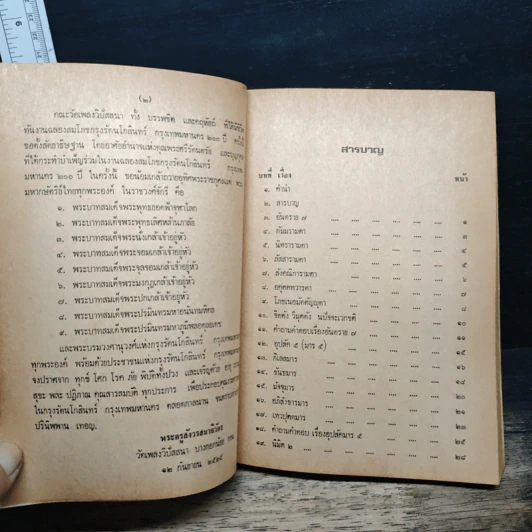 (๒)
คณะวัดเพลงวิปัสสนา ทั้ง บรรพชิต และคฤหัสถ์ ที่ได้
ทันงานฉลองสมโภชกรุงรัตนโกสินทร์ กรุงเทพมหานคร ๒๐๐ ปี
ขอตั้งสัตยาธิษฐาน โดยอาศัยอำนาจแห่งคุณพระศรีรัตนตรัย และบุญกุศล
ที่ได้กระทำบำเพ็ญร่วมในงานฉลองสมโภชกรุงรัตนโกสินทร์ กรุงเทพ
มหานคร ๒๐๐ ปี ในครั้งนี้ ขอน้อมเกล้าถวายอุทิศพระราชกุศลแด่
มหากษัตริย์ไทยทุกพระองค์ ในราชวงศ์จักรี คือ
๑. พระบาทสมเด็จพระพุทธยอดฟ้าจุฬาโลก
๒. พระบาทสมเด็จพระพุทธเลิศหล้านภาลัย
๓. พระบาทสมเด็จพระนั่งเกล้าเจ้าอยู่หัว
๔. พระบาทสมเด็จพระจอมเกล้าเจ้าอยู่หัว
๕. พระบาทสมเด็จพระจุลจอมเกล้าเจ้าอยู่หัว
๖. พระบาทสมเด็จพระมงกุฎเกล้าเจ้าอยู่หัว
๗. พระบาทสมเด็จพระปกเกล้าเจ้าอยู่หัว
๘. พระบาทสมเด็จพระปรมินทรมหาอานันทมหิดล
๙. พระบาทสมเด็จพระปรมินทรมหาภูมิพลอดุลยเดช
และพระบรมวงศานุวงศ์แห่งกรุงรัตนโกสินทร์ กรุงเทพมหานคร
ทุกพระองค์ พร้อมด้วยประชาชนแห่งกรุงรัตนโกสินทร์ กรุงเทพ
จงปราศจาก ทุกข์ โศก โรค ภัย พิบัติทั้งปวง และเจริญด้วย อายุ
สุขะ พละ ปฏิภาณ คุณสารสมบัติ ทุกประการ เพื่อประกอบคุณ
ในกรุงรัตนโกสินทร์ กรุงเทพมหานคร ตลอดกาลนาน จนตราบ
ปรินิพพาน เทอญ.
พระครูสังวรสมาธิวัตร
วัดเพลงวิปัสสนา บางกอกน้อย กทม.
๑๒ กันยายน ๒๕๒๕
สารบาญ
บทที่ เรื่อง หน้า
๑. คำนำ
๒. สารบาญ
๓. อันตราย ๗ .... .... .... .... .... .... ๑
๔. กัมมรามตา .... .... .... .... .... .... ๓
๕. นิทรารามตา .... .... .... .... .... .... ๕
๖. ภัสสารามตา .... .... .... .... .... .... ๕
๗. สังคณิการามตา .... .... .... .... .... ๖
๘. อคุตตทวารตา .... .... .... .... .... ๗
๙. โภชเนอมัตตัญญุตา .... .... .... .... ๘
๑๐. จิตตัง วิมุตตัง นปัจจะเวกขติ .... .... ๑๐
๑๑. คำถามคำตอบเรื่องอันตราย ๗ .... .... ๑๐
๑๒. อุปสัค ๕ (มาร ๕) .... .... .... .... ๑๕
๑๓. กิเลสมาร .... .... .... .... .... .... ๑๕
๑๔. ขันธมาร .... .... .... .... .... .... ๑๘
๑๕. มัจจุมาร .... .... .... .... .... ....
๑๖. อภิสังขารมาร .... .... .... .... .... ๒๑
๑๗. เทวปุตตมาร .... .... .... .... .... ๒๓
๑๘. คำถามคำตอบ เรื่องอุปสัคมาร ๕ .... .... ๒๔
๑๙. นิมิต ๒ .... .... .... .... .... .... ๒๘
6